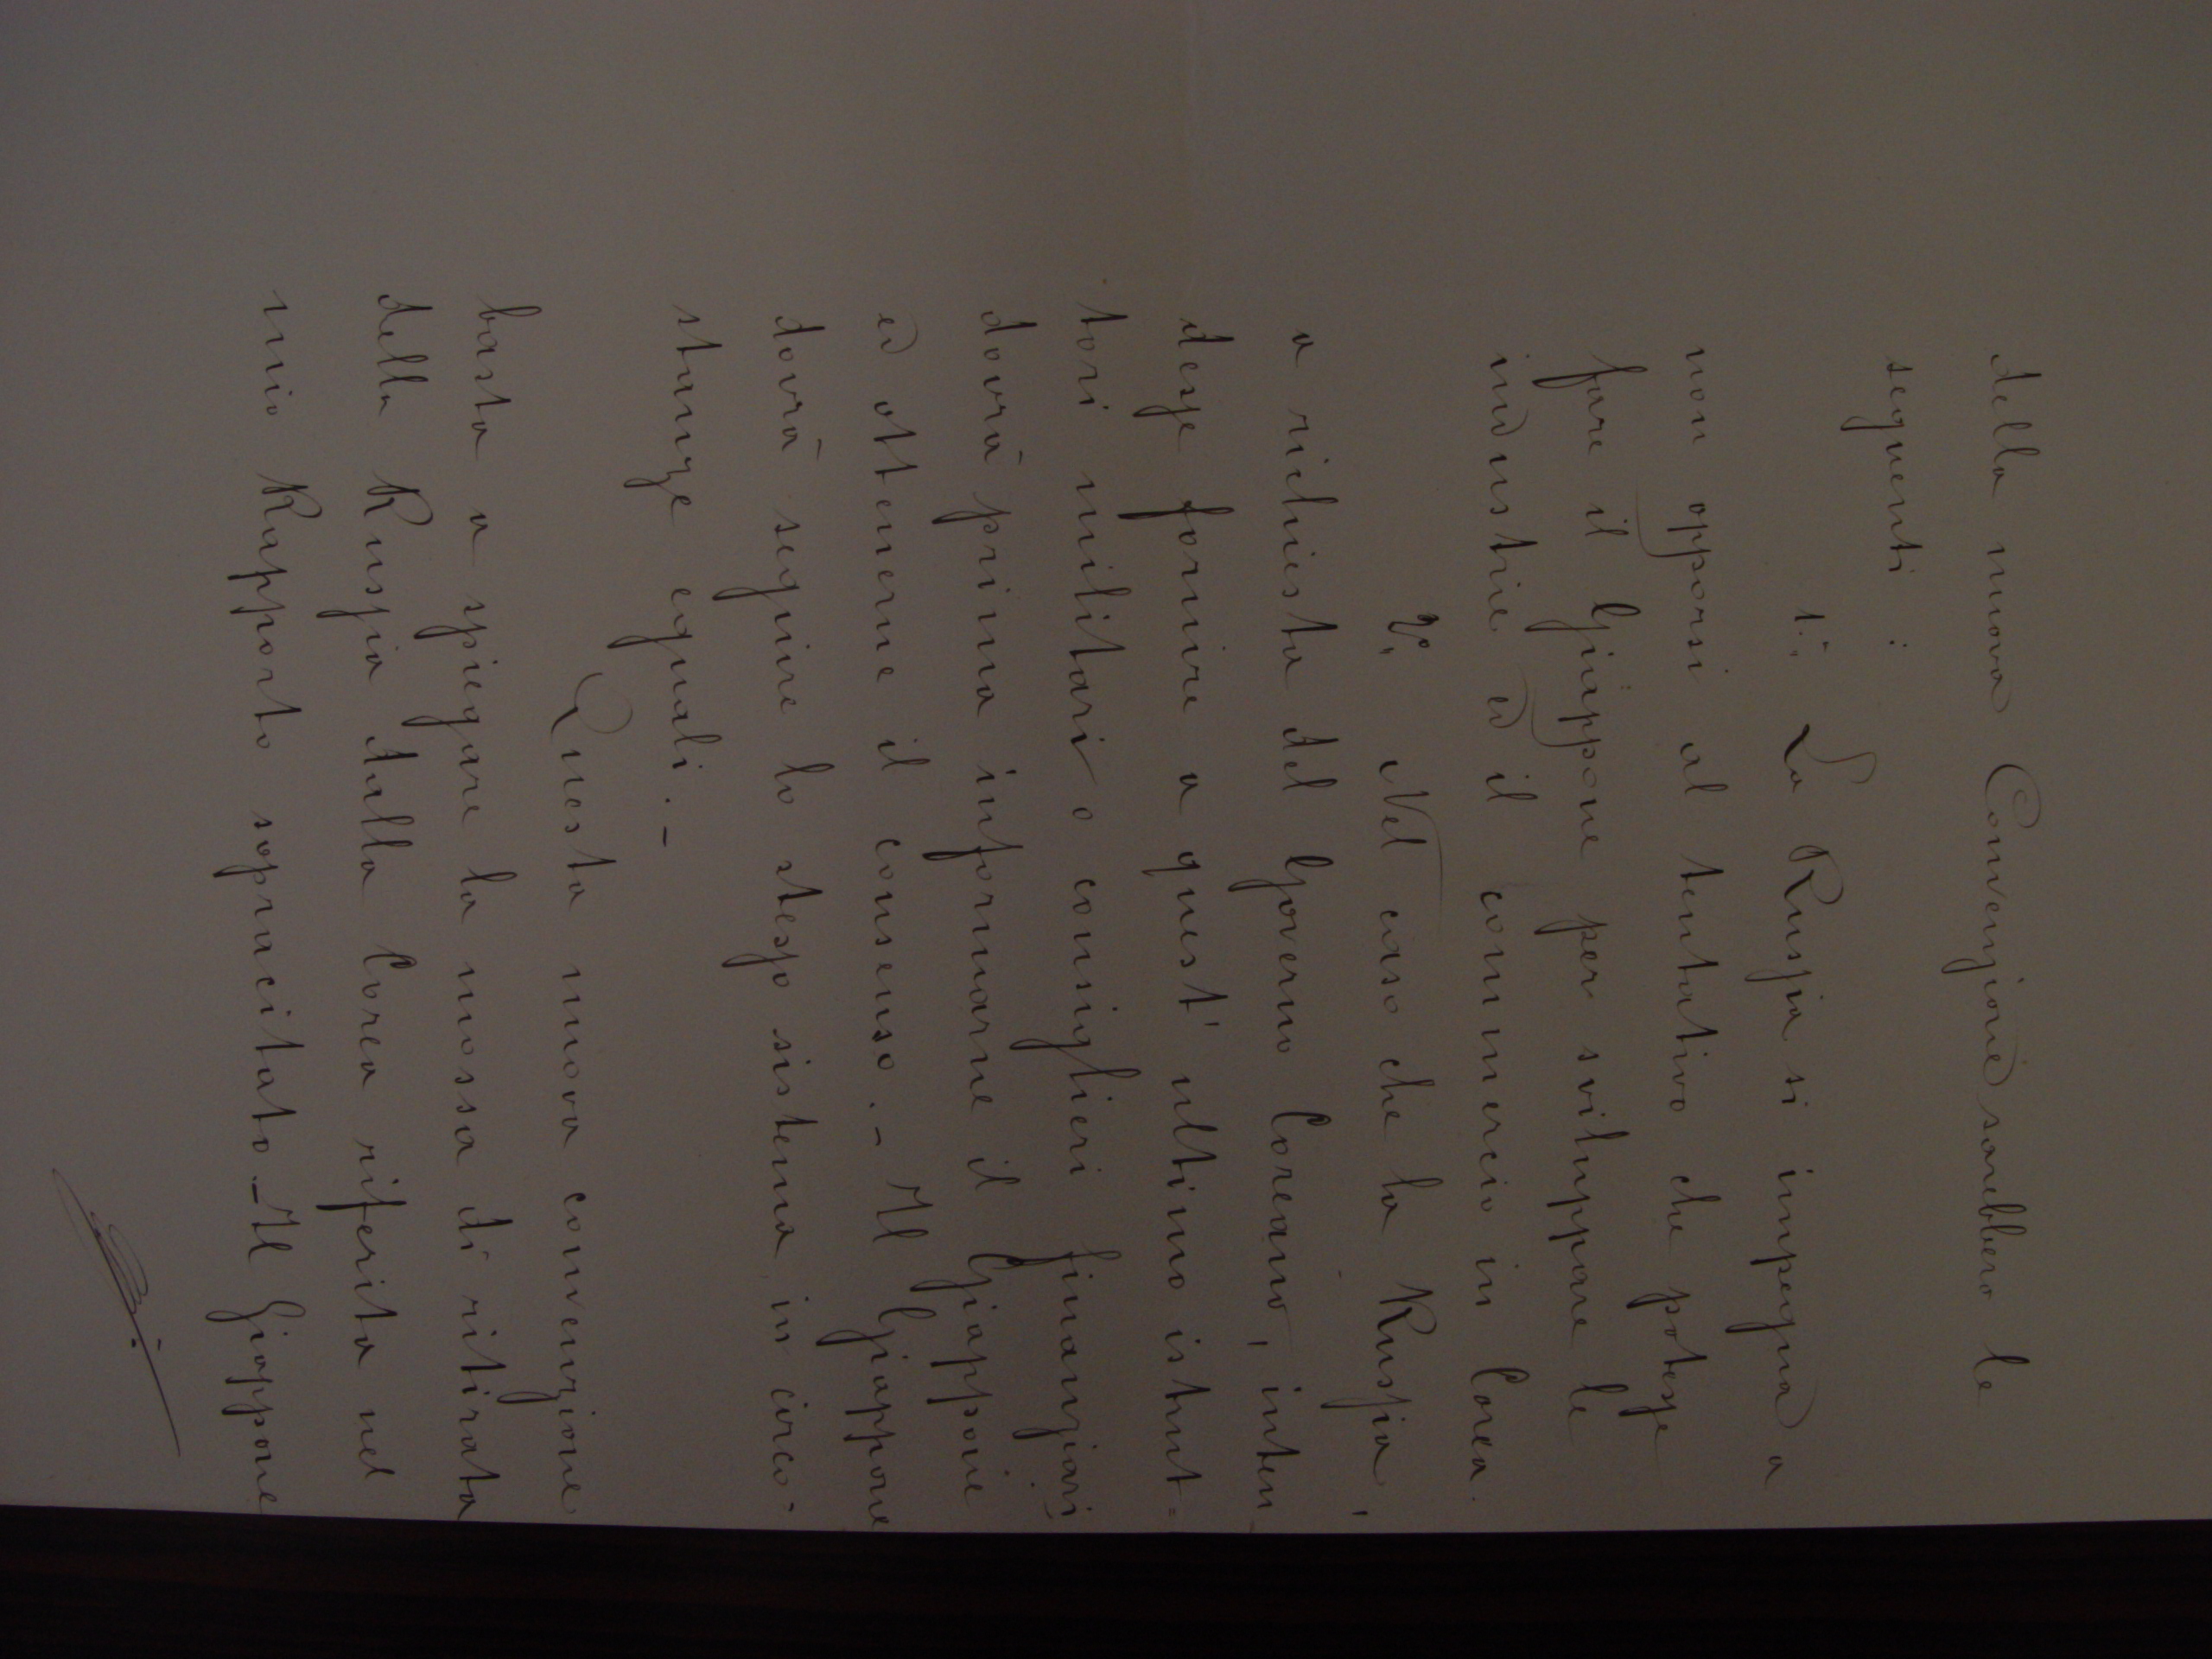 della nuova Convenzione sarebbero le
seguenti :
1.° La Russia si impegna a
non opporsi al tentativo che potesse
fare il Giappone per sviluppare le
industrie ed il commercio in Corea.
2.° Nel caso che la Russia,
a richiesta del Governo Coreano, inten
desse fornire a quest' ultimo istrut=
tori militari o consiglieri finanziari,
dovrà prima informarne il Giappone
ed ottenerne il consenso. - Il Giappone
dovrà seguire lo stesso sistema in circo-
stanze eguali. -
Questa nuova convenzione
basta a spiegare la mossa di ritirata
della Russia dalla Corea riferita nel
mio Rapporto sopracitato. - Il Giappone